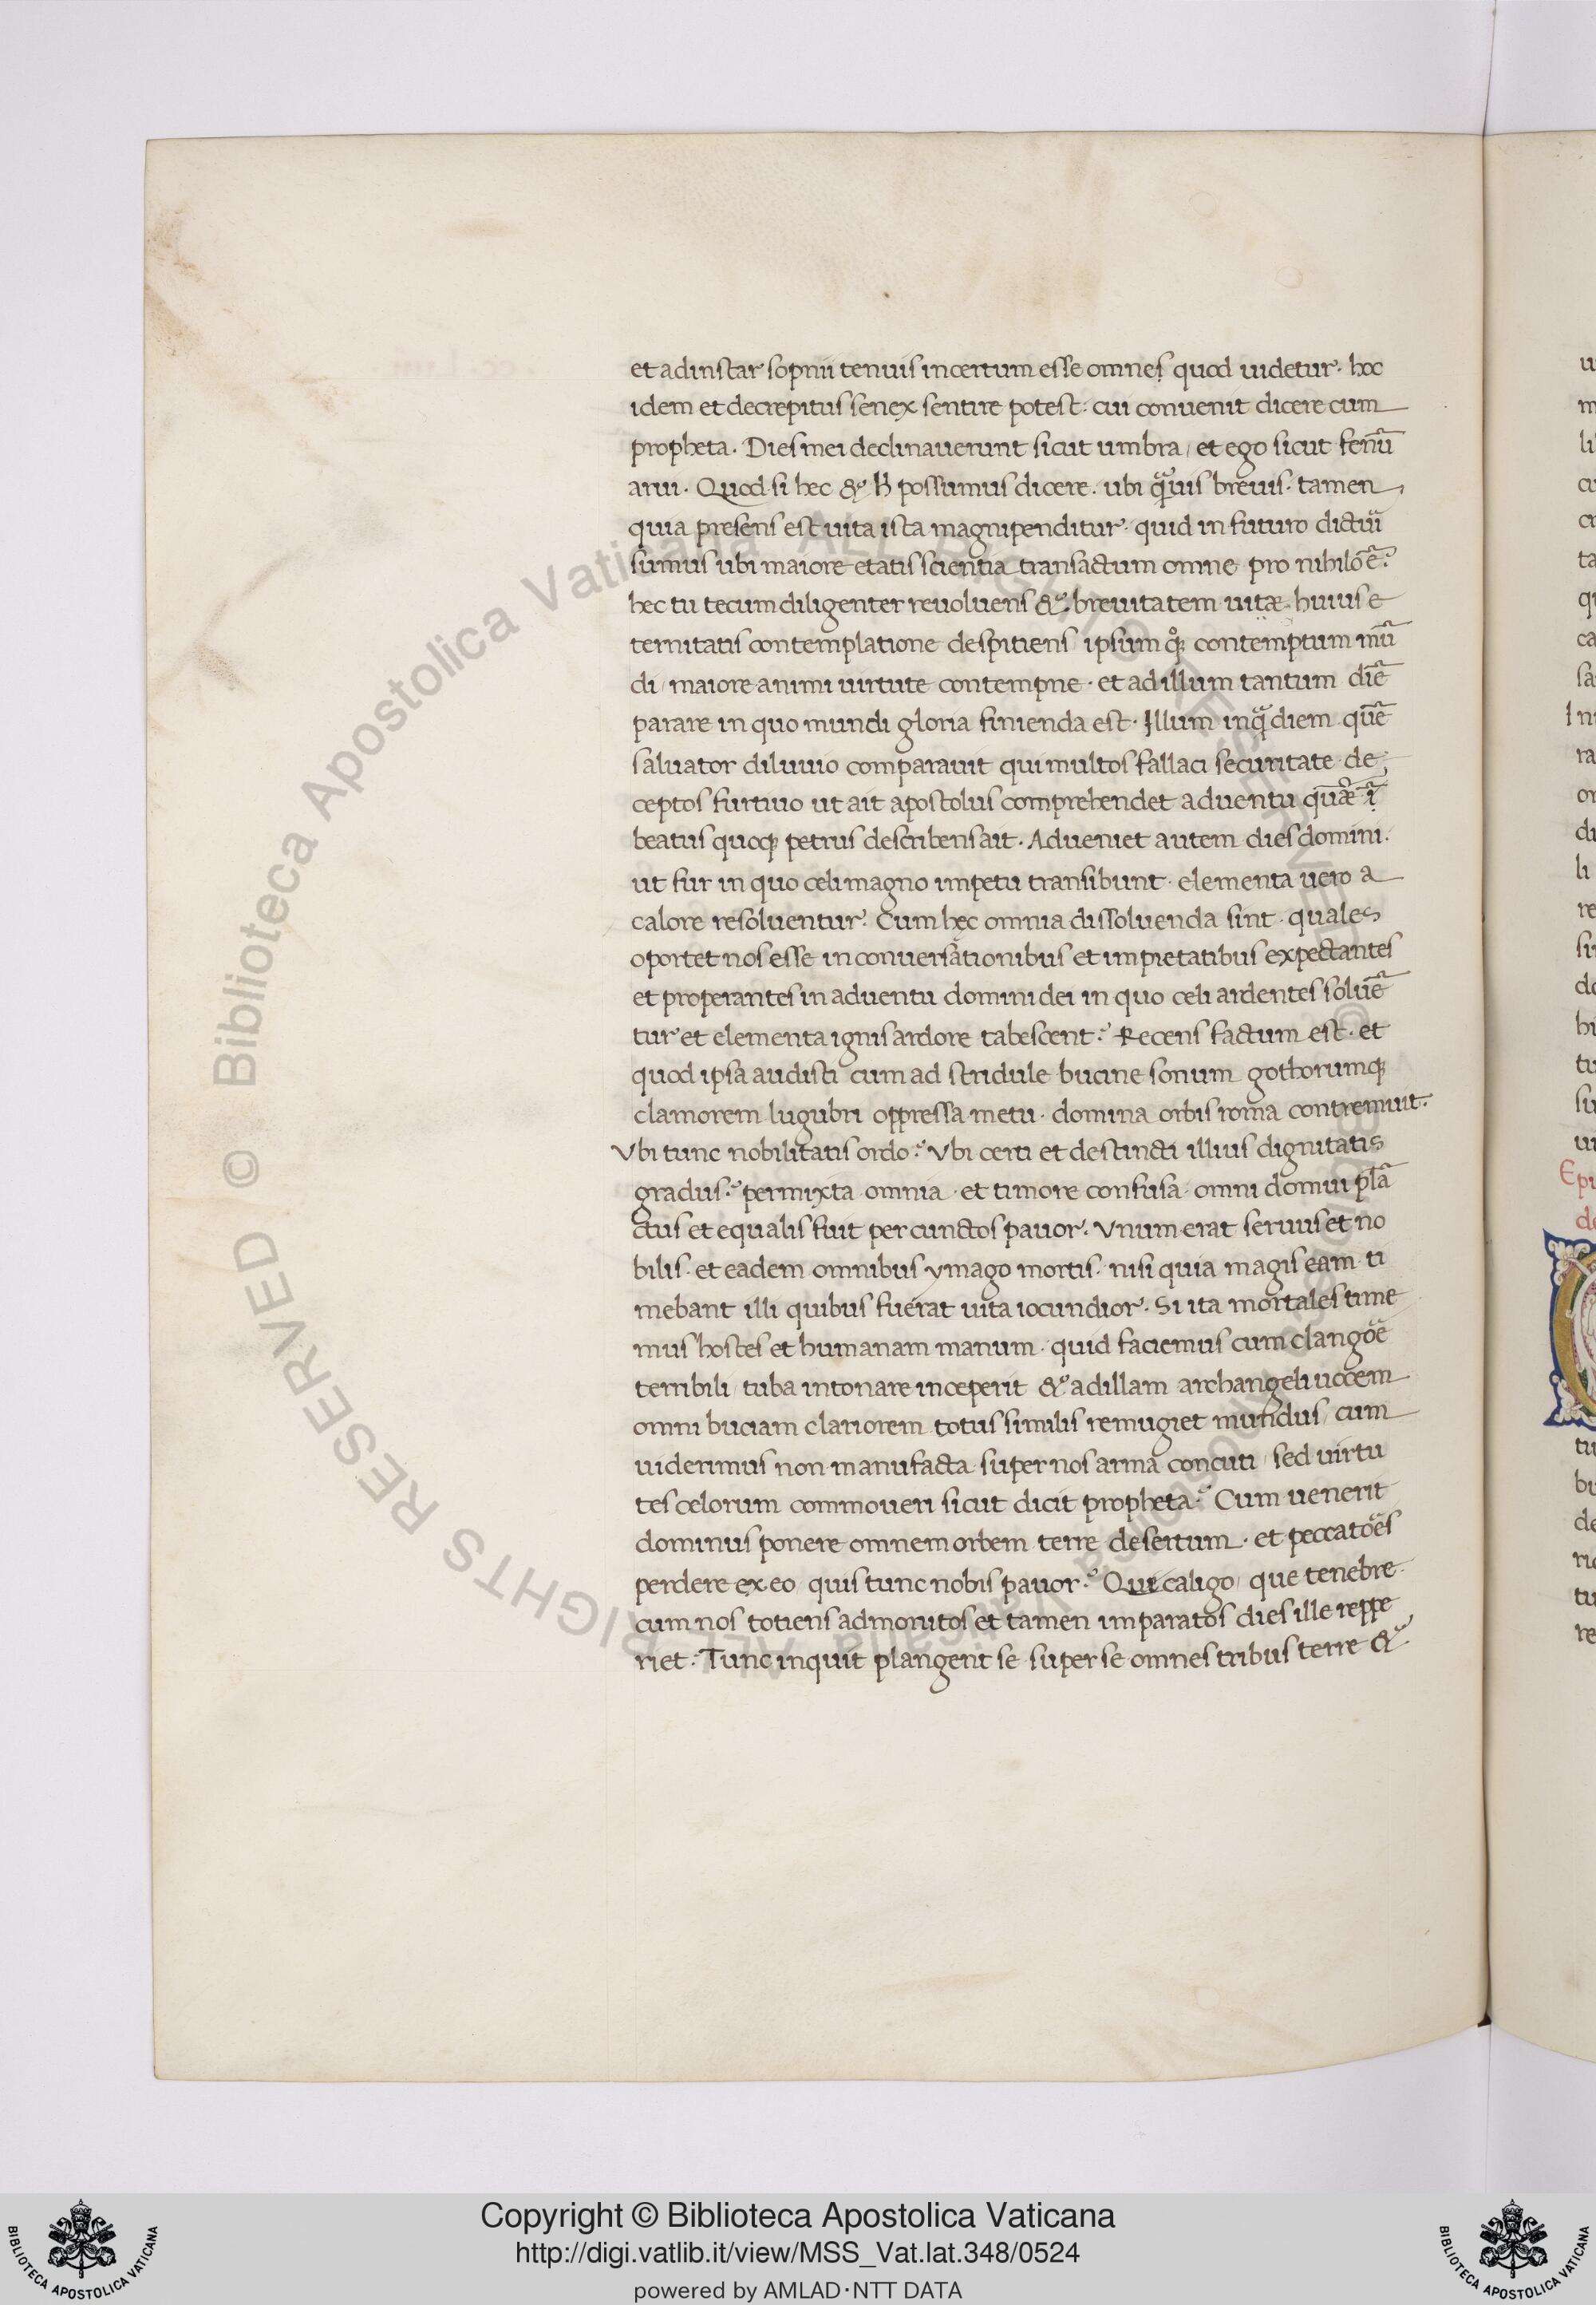 et adinstar sopnii tenuis incertum esse omnes quod uidetur. hoc
idem et decrepitus senex sentire potest. cui conuenit dicere cum
propheta. Dies mei declinauerunt sicut umbra, et ego sicut fenū
arui. Quod si hec & possumus dicere. ubi quis breuis. tamen
quia presens est uita ista magnipenditur. quid in futuro dictui
sumus ubi maiore etatis scientia transactum omne pro nihilo ē.
hec tu tecum diligenter reuoluens & breuitatem uitæ huius e
ternitatis contemplatione despitiens ipsum qq contemptum mū
di, maiore animi uirtute contempne. et ad illum tantum diē
parare in quo mundi gloria finienda est. Illum inq̄ diem quē
saluator diluuio comparauit qui multos fallaci securitate de
ceptos furtiuo ut ait apostolus comprehendet aduentu
beatus quoq petrus describens ait. Adueniet autem dies domini.
ut fur in quo celi magno impetu transibunt. elementa uero a
calore resoluentur. Cum hec omnia dissoluenda sint. quales
oportet nos esse in conuersationibus et impietatibus expectantes
et properantes in aduentu domini dei in quo celi ardentes soluē
tur et elementa ignis ardore tabescent. Recens factum est. et
quod ipsa audisti cum ad stridule bucine sonum gothorumq
clamorem lugubri oppressa metu. domina orbis roma contremuit.
Vbi tunc nobilitatis ordo. Vbi certi et destincti illius dignitatis
gradus. permixta omnia. et timore confusa. omni domui plā
ctus et equalis fuit per cunctos pauor. Vnum erat seruus et no
bilis. et eadem omnibus ymago mortis. nisi quia magis eam ti
mebant illi quibus fuerat uita iocundior. Si ita mortales time
mus hostes et humanam manum. quid faciemus cum clangōē
terribili, tuba intonare inceperit & ad illam archangeli uocem
omni buciam clariorem totus similis remugiet mundus, cum
uiderimus non manufacta super nos arma concuti, sed uirtu
tes celorum commoueri sicut dicit propheta. Cum uenerit
dominus ponere omnem orbem terre desertum. et peccatōēs
perdere ex eo quis tunc nobis pauor. Que caligo, que tenebre
cum nos totiens admonitos et tamen imparatos dies ille reppe
riet. Tunc inquit plangent se super se omnes tribus terre &
Copyright © Biblioteca Apostolica Vaticana
http://digi.vatlib.it/view/MSS_Vat.lat.348/0524
powered by AMLAD·NTT DATA
BIBLIOTECA APOSTOLICA VATICANA
BIBLIOTECA APOSTOLICA VATICANA
Biblioteca Apostolica Vaticana ALL RIGHTS RESERVED ©
Biblioteca Apostolica Vaticana ALL RIGHTS RESERVED ©